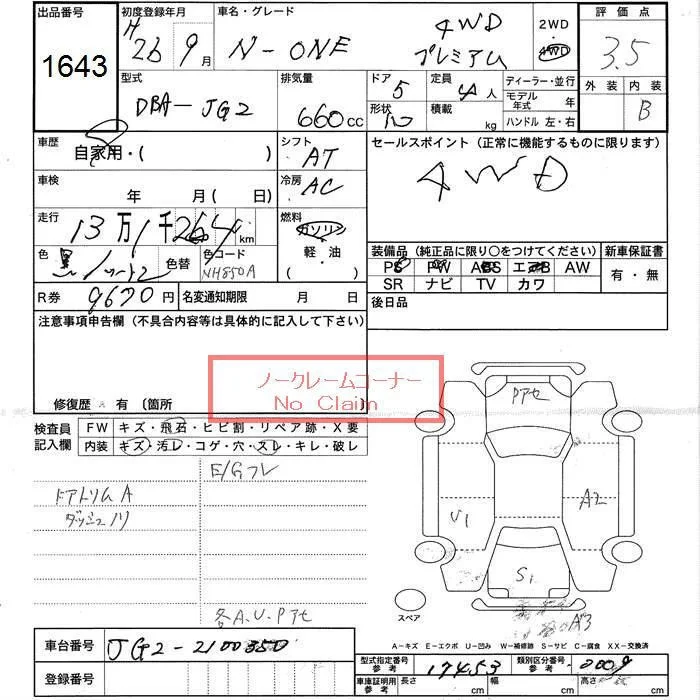 出品番号
1643
初度登録年月
H 26 9月
車名・グレード
N-ONE
4WD
プレミアム
2WD
4WD
評価点
3.5
外装 内装
B
型式
DBA-JG2
排気量
660cc
ドア 5
形状
定員 4人
積載 kg
ディーラー・並行
モデル年式 年
ハンドル 左・右
車歴
自家用・( )
シフト AT
セールスポイント (正常に機能するものに限ります)
4WD
車検
年 月 ( 日)
冷房 AC
走行
13万1千264km
燃料
ガソリン
軽・油
( )
色 黒
色替
色コード
NH850A
装備品 (純正品に限り○をつけてください)
PS PW ABS エアB AW
SR ナビ TV カワ
新車保証書
有・無
R券 9670円
名変通知期限 月 日
後日品
注意事項申告欄 (不具合内容等は具体的に記入して下さい)
ノークレームコーナー
No Claim
修復歴 有 〔箇所
検査員記入欄
FW キズ・飛石・ヒビ割・リペア跡・X要
内装 キズ・汚レ・コゲ・穴・スレ・キレ・破レ
E/Gフレ
ドアトリムA
ダッシュノリ
各A.U.Pアセ
Pアセ
A2
U1
S1
A3
スペア
A-キズ E-エクボ U-凹み W-補修跡 S-サビ C-腐食 XX-交換済
車台番号 JG2-2100350
登録番号
型式指定番号 参考 17453
類別区分番号 参考 0009
車庫証明用 参考 長さ cm 幅 cm 高さ cm